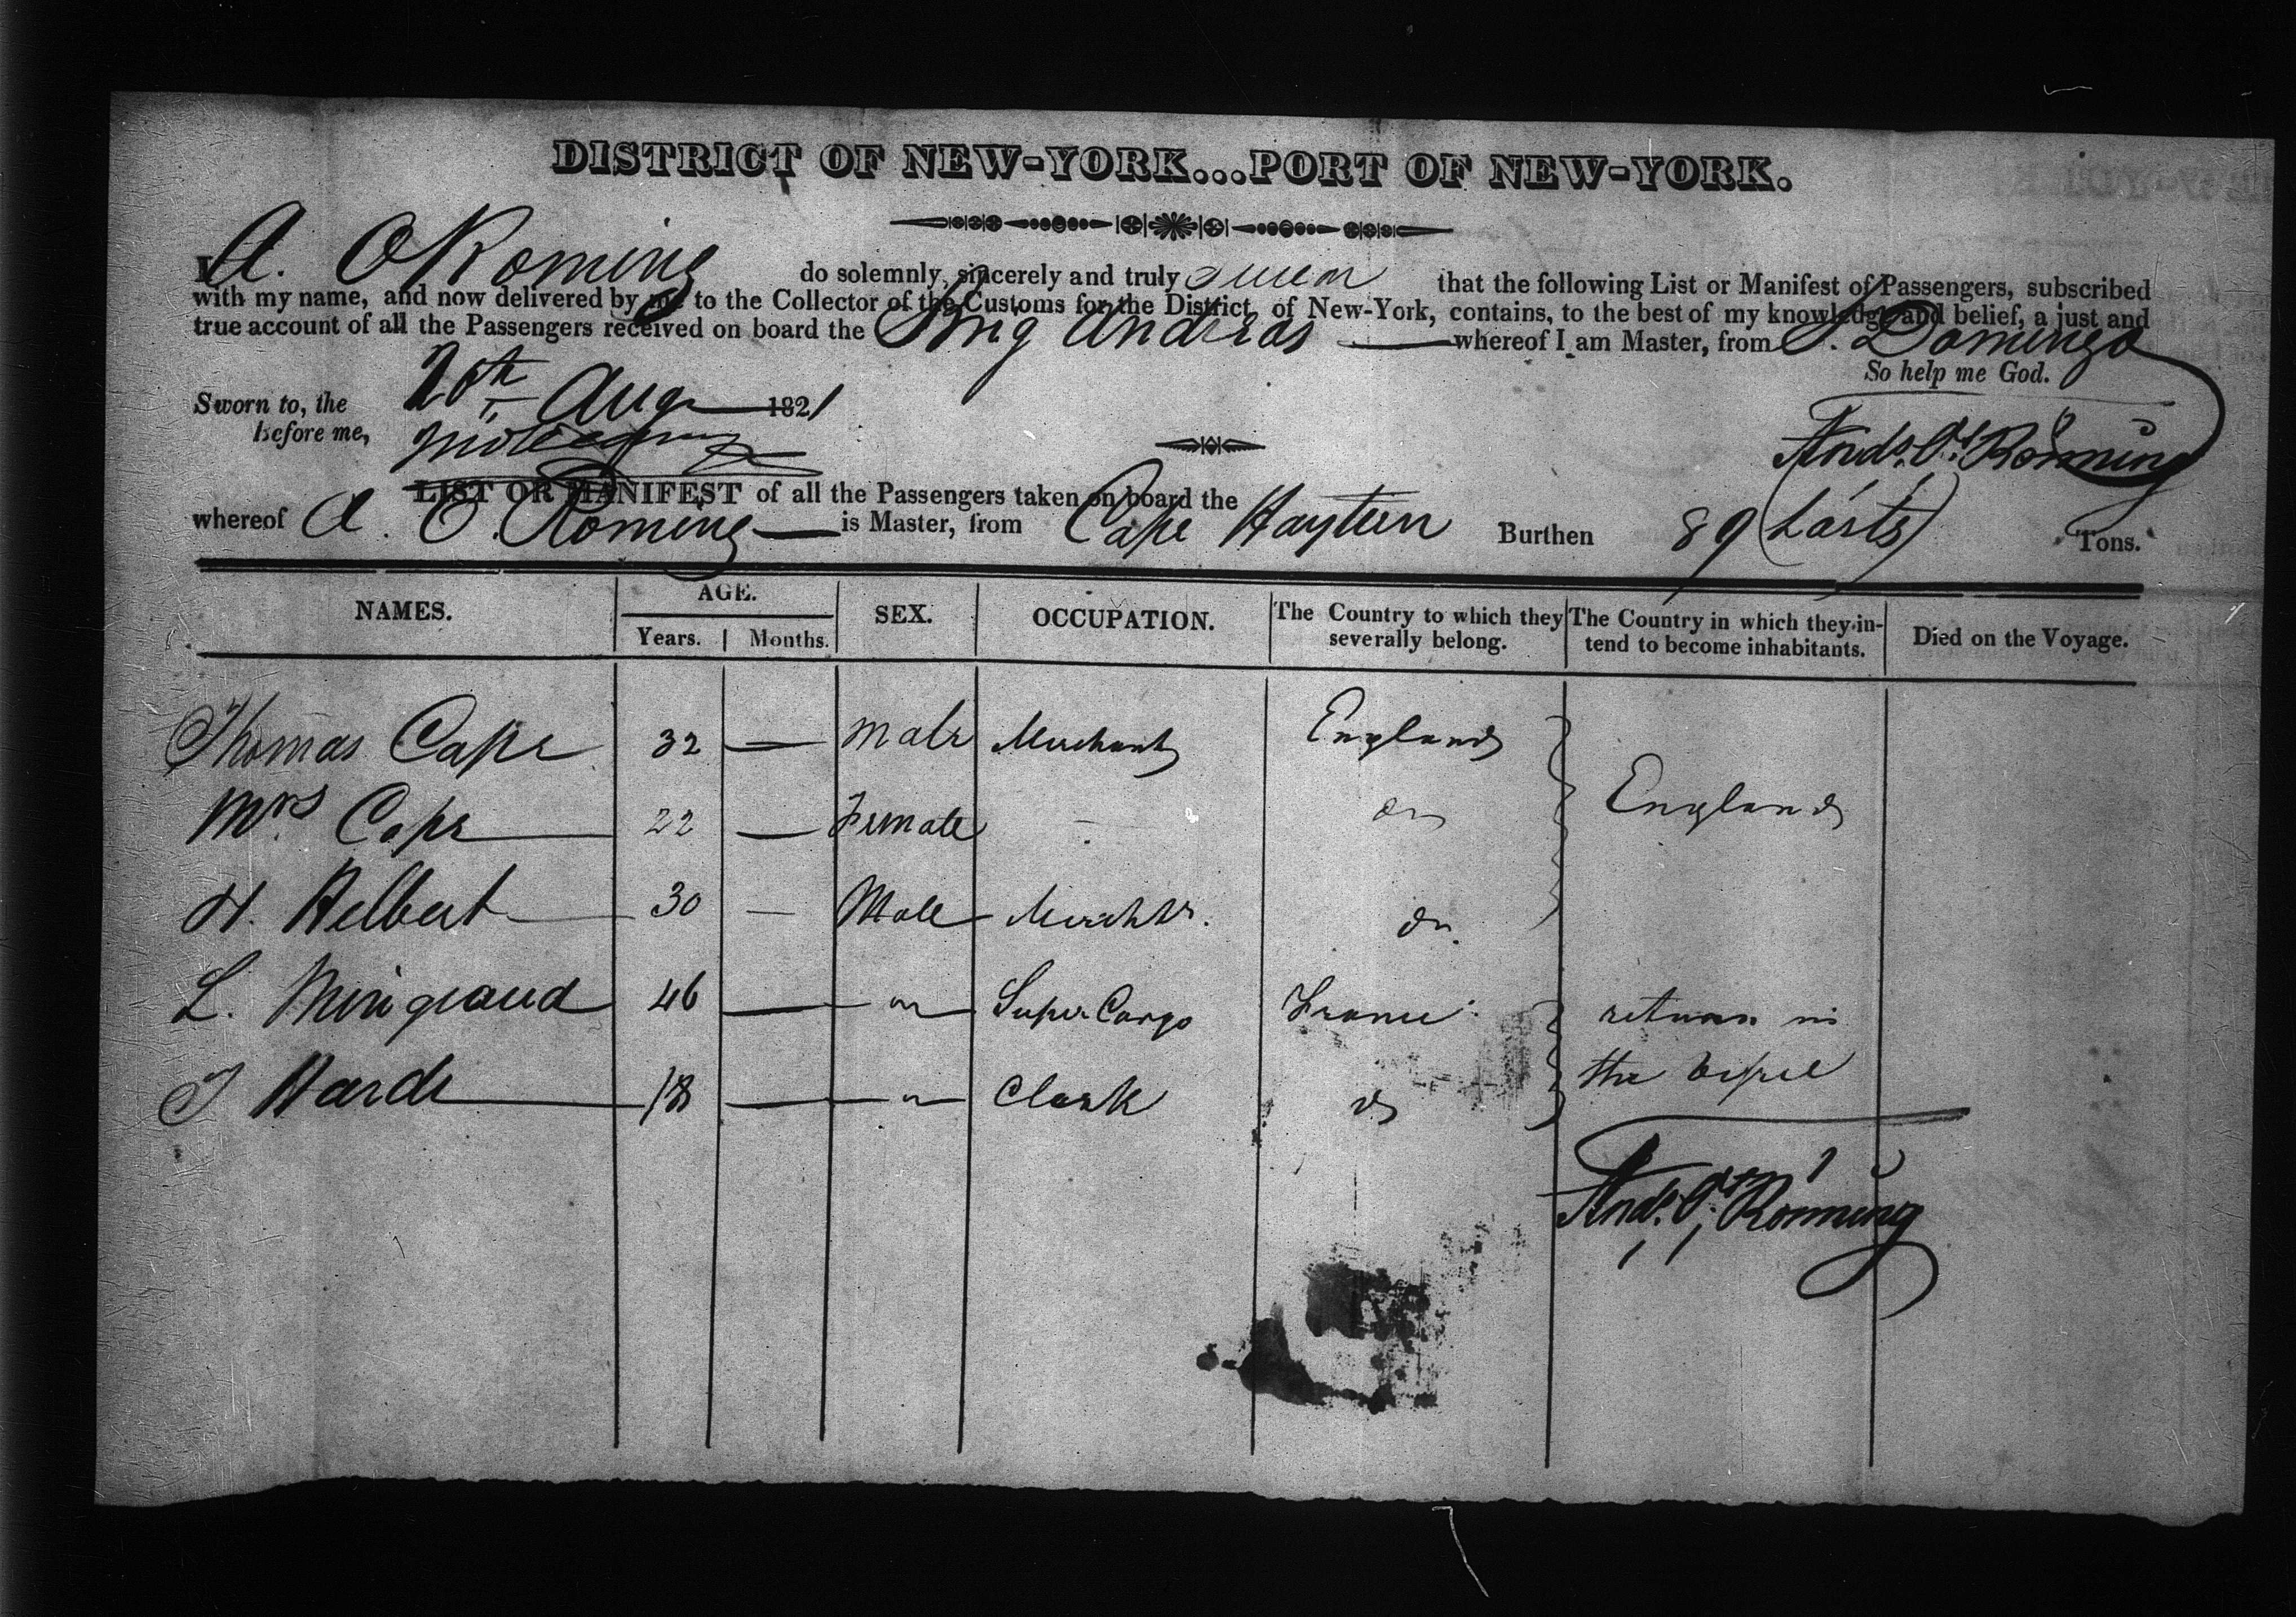 DISTRICT OF NEW-YORK...PORT OF NEW-YORK.
I A. O Roming do solemnly, sincerely and truly swear that the following List or Manifest of Passengers, subscribed
with my name, and now delivered by me to the Collector of the Customs for the District of New-York, contains, to the best of my knowledge and belief, a just and
true account of all the Passengers received on board the Brig Andreas whereof I am Master, from S. Domingo
So help me God.
Sworn to, the 20th Aug 1821
Before me,
Ands. Os. Rönning
LIST OR MANIFEST of all the Passengers taken on board the
whereof A. O. Roming is Master, from Cape Haytien Burthen 89 (Lasts) Tons.
NAMES. AGE. Years. Months. SEX. OCCUPATION. The Country to which they severally belong. The Country in which they intend to become inhabitants. Died on the Voyage.
Thomas Cape 32 — Male Merchant England
Mrs Cape 22 — Female - do England
H. Helbert 30 — Male Mercht. do.
L. Mingeaud 46 — " Super Cargo France return in
J Harde 18 — " Clerk do the vessel
Ands. Os. Rönning